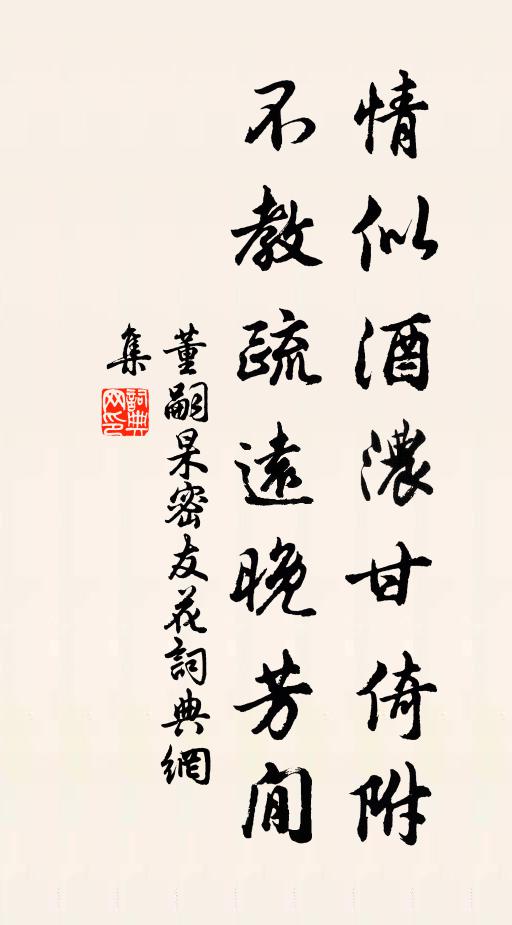 情似酒濃甘倚附
不教疏遠晚芳間
董嗣杲密友花詞典網
集
詞典
网印